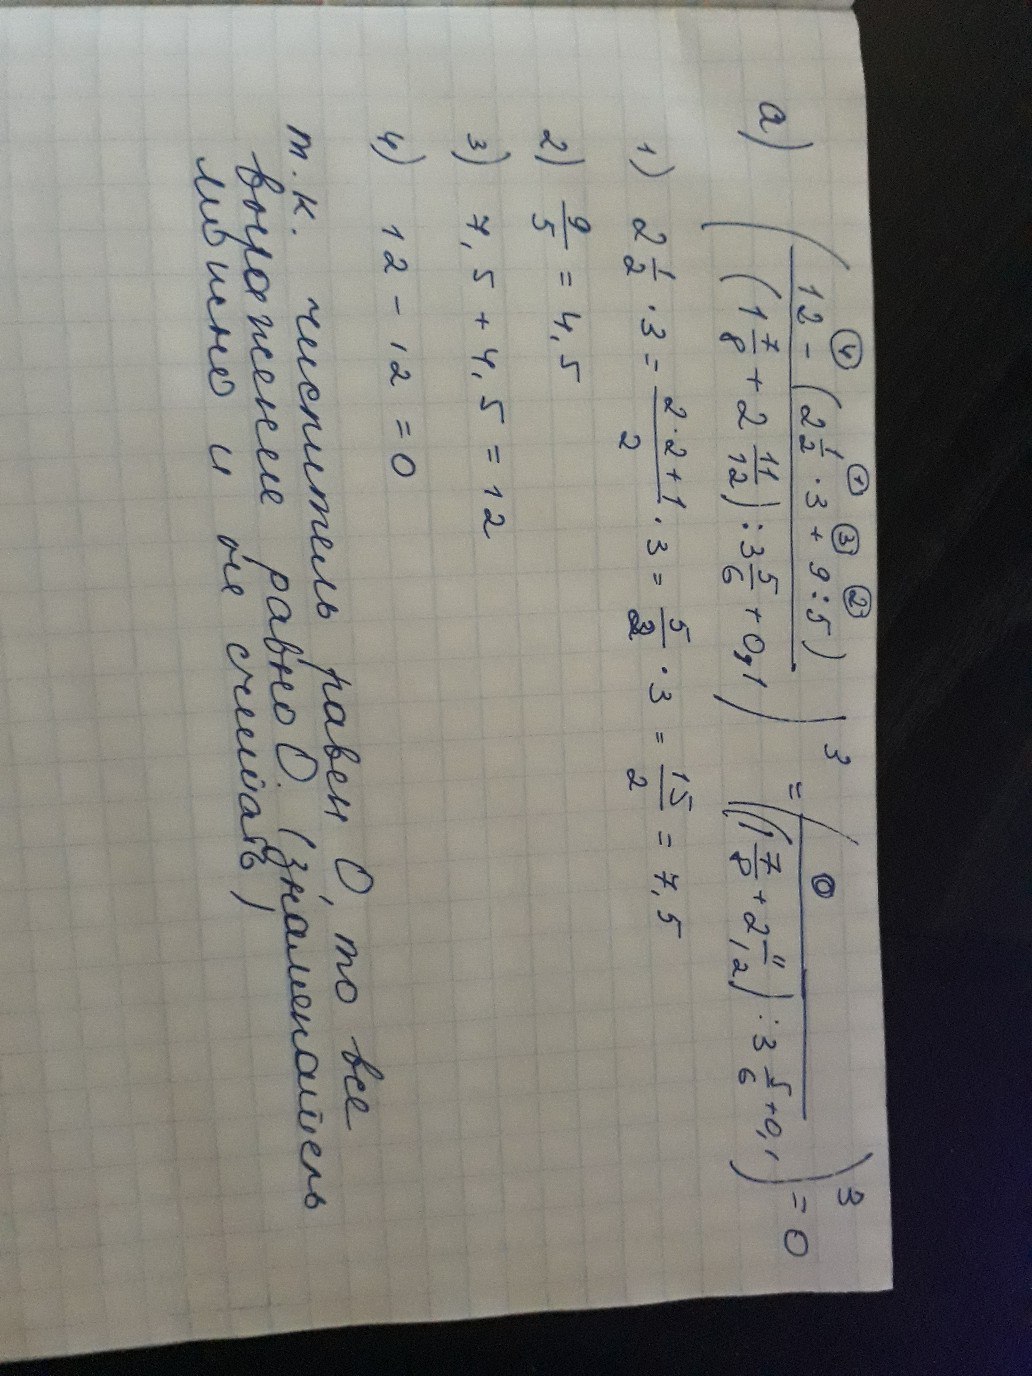 ④ ① ③ ②
а) ( 12 - (2 1/2 · 3 + 9 : 5) / (1 7/8 + 2 11/12) : 3 5/6 + 0,1 )³ = ( 0 / ((1 7/8 + 2 11/12) : 3 5/6 + 0,1 )³ = 0
1) 2 1/2 · 3 = 2·2+1/2 · 3 = 5/2 · 3 = 15/2 = 7,5
2) 9/5 = 4,5
3) 7,5 + 4,5 = 12
4) 12 - 12 = 0
т.к. числитель равен 0, то все
выражение равно 0. (знаменатель
можно и не считать)